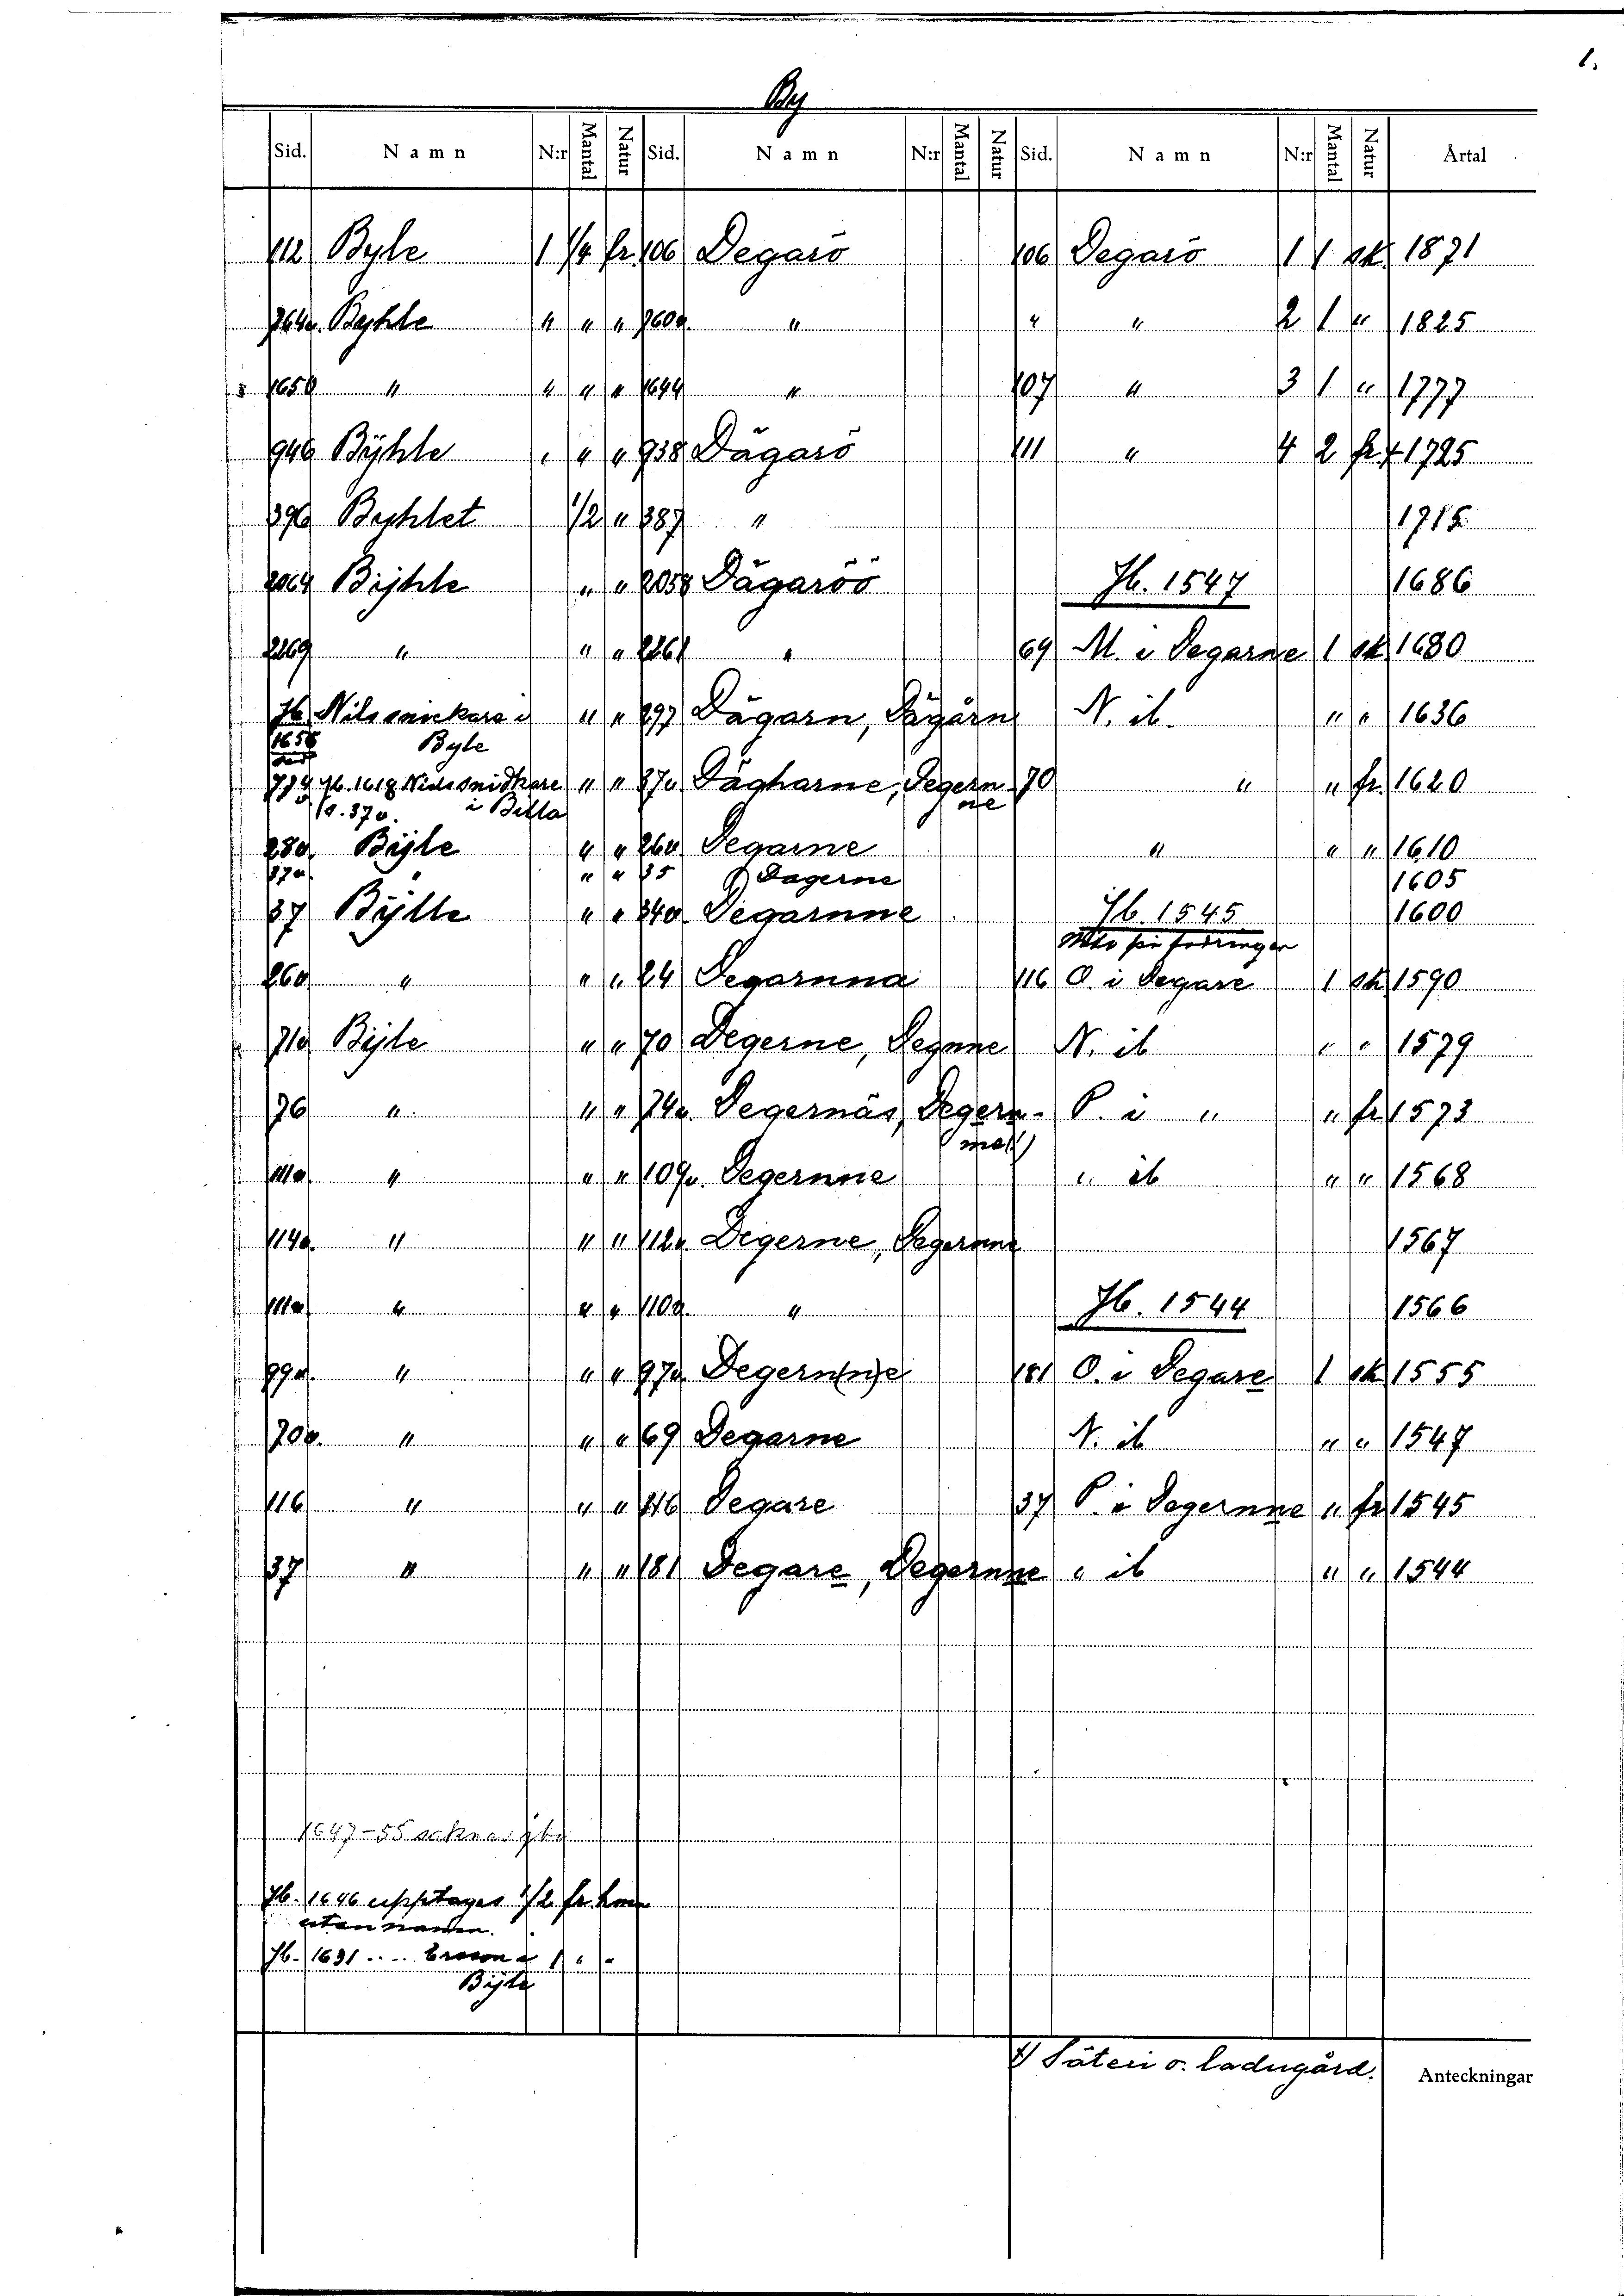 1.
By
Sid. Namn N:r Mantal Natur Sid. Namn N:r Mantal Natur Sid. Namn N:r Mantal Natur Årtal
112 Byle 1 1/4 fr. 106 Degarö 106 Degarö 1 1 sk. 1871
764v. Byhle " " " 760v. " " " 2 1 " 1825
1650 " " " " 1644 " 107 " 3 1 " 1777
946 Bÿhle " " " 938 Dägarö 111 " 4 2 fr. 1) 1725
396 Byhlet 1/2 " 387 " 1715
2064 Bÿhle " " 2058 Dägaröö Jb. 1547 1686
2269 " " " 2261 " 69 M. i Degarne 1 sk 1680
Jb. Nils snickare i " " 297 Dägarn, Dägärn N. ib. " " 1636
1656 Byle
774 Jb. 1618 Nils snidkare " " 37v Dägharne, Degern- 70 " " fr. 1620
s. 37v. i Billa ne
280 Bÿle " " 260 Degarne " " " 1610
37v " " 35 Dagerne 1605
37 Bÿlle " " 340 Degarnne Jb. 1545 1600
260 " " " 24 Degarnna 116 O. i Degare 1 sk 1590
71v Bÿle " " 70 Degerne, Degnne N. ib " " 1579
76 " " " 74v. Degernäs, Degern- P. i " " fr 1573
111v " " " 109v. Degernne " ib " " 1568
114v. " " " 112v Degerne, Degernne 1567
111v " " " 110v. " Jb. 1544 1566
99v. " " " 97v. Degern(n)e 181 O. i Degare 1 sk 1555
70v. " " " 69 Degarne N. ib " " 1547
116 " " " 116 Degare 37 P. i Degernne " fr 1545
37 " " " 181 Degare, Degernne " ib " " 1544
1647-55 saknas jbr
Jb. 1646 upptages 1/2 fr. hmn
utan namn.
Jb. 1631 .... Ersson i 1 " "
Bÿle
1) Säteri o. ladugård. Anteckningar